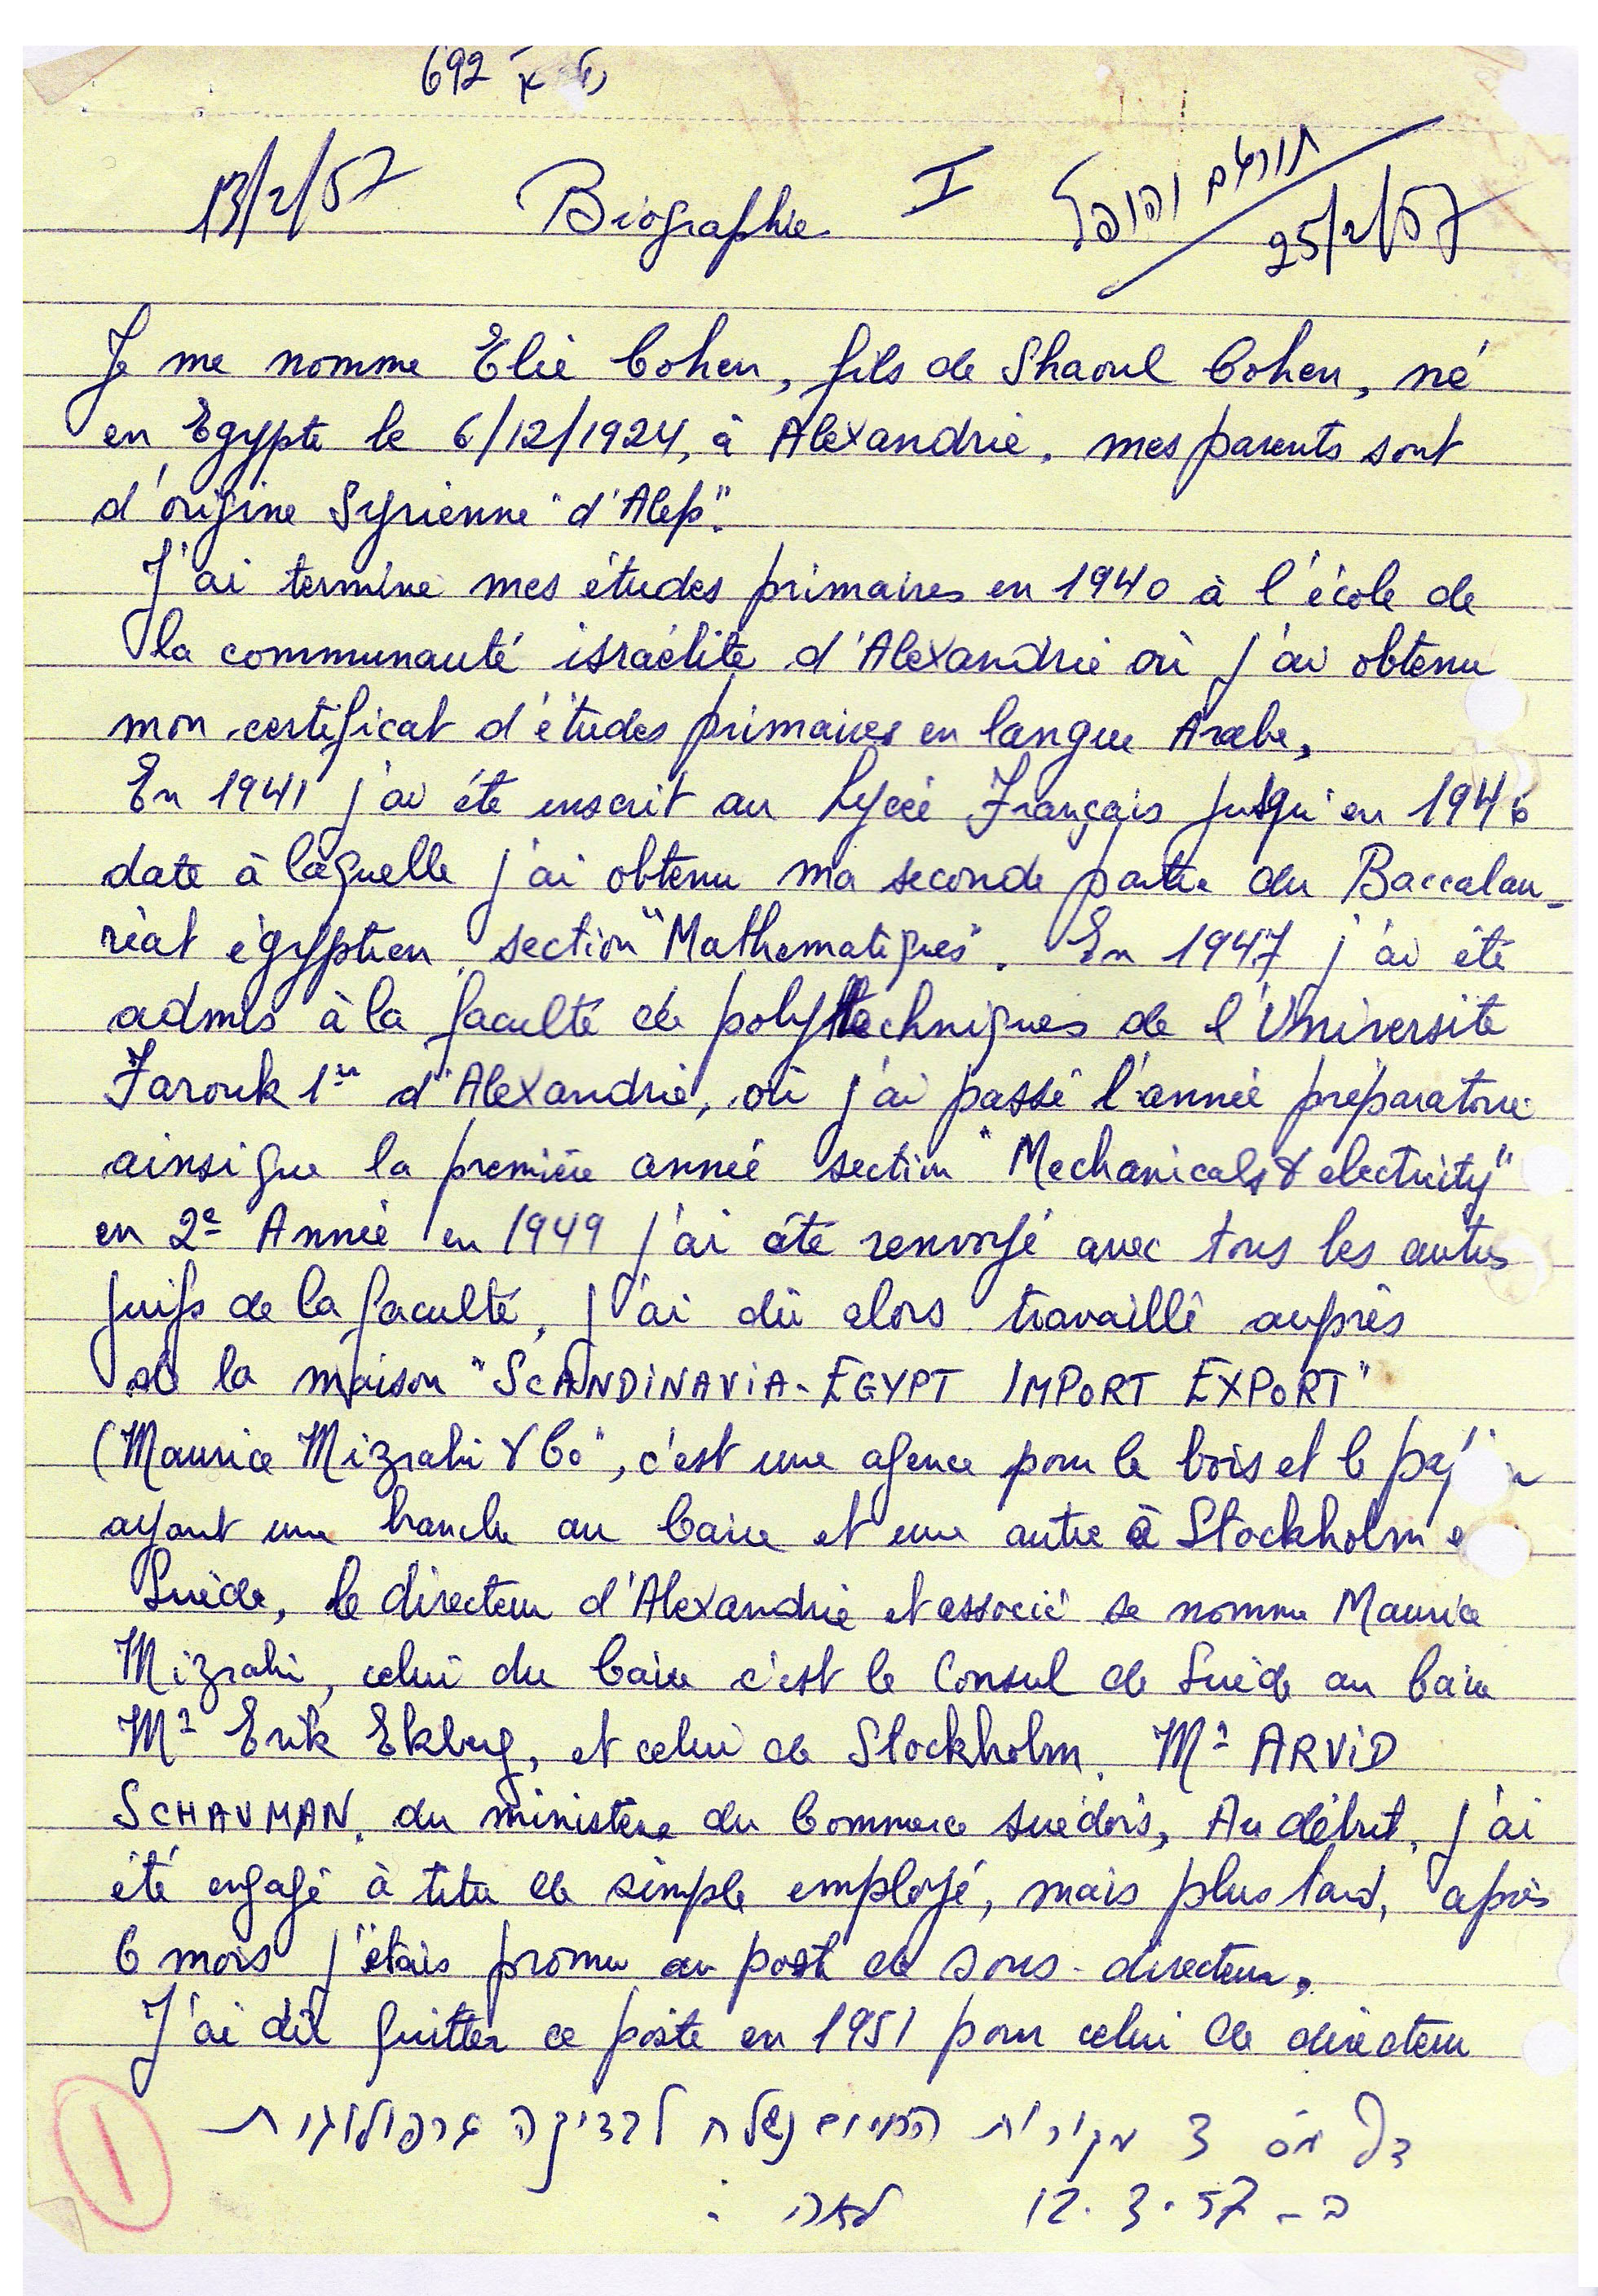 692
13/2/57 Biographie I תורגם והופל 25/2/57
Je me nomme Elie Cohen, fils de Shaoul Cohen, né
en Egypte le 6/12/1924, à Alexandrie, mes parents sont
d'origine Syrienne "d'Alep".
J'ai terminé mes études primaires en 1940 à l'école de
la communauté israélite d'Alexandrie où j'ai obtenu
mon certificat d'études primaires en langue Arabe,
En 1941 j'ai été inscrit au Lycée Français jusqu'en 1946
date à laquelle j'ai obtenu ma seconde partie du Baccalau-
réat égyptien section "Mathematiques". En 1947 j'ai été
admis à la faculté de polytechniques de l'Université
Farouk 1er d'Alexandrie, où j'ai passé l'année préparatoire
ainsi que la première année section "Mechanicals & electricity"
en 2e Année en 1949 j'ai été renvoyé avec tous les autres
juifs de la faculté, j'ai dû alors travaillé auprès
de la maison "SCANDINAVIA-EGYPT IMPORT EXPORT"
(Maurice Mizrahi & Co", c'est une agence pour le bois et le
ayant une branche au Caire et une autre à Stockholm
Suède, le directeur d'Alexandrie et associé se nomme Maurice
Mizrahi, celui du Caire c'est le Consul de Suède au Caire
Mr Erik Ekberg, et celui de Stockholm, Mr ARVID
SCHAUMAN, du ministère du Commerce suédois, Au début, j'ai
été engagé à titre de simple employé, mais plus tard, après
6 mois j'étais promu au post de sous-directeur,
J'ai dû quitter ce poste en 1951 pour celui de directeur
דף מס 3 מקורות נשלח לבדיקה גרפולוגית
ב- 12.3.57
1